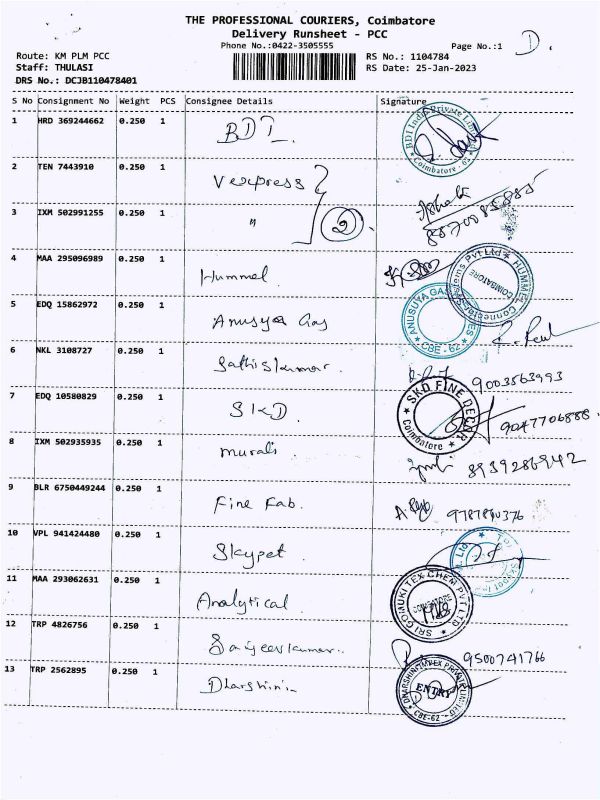 THE PROFESSIONAL COURIERS, Coimbatore
Delivery Runsheet - PCC
Phone No.:0422-3505555
Page No.:1 D.
Route: KM PLM PCC
RS No.: 1104784
Staff: THULASI
RS Date: 25-Jan-2023
DRS No.: DCJB110478401
S No Consignment No Weight PCS Consignee Details Signature
1 HRD 369244662 0.250 1 BDI
BDI India Private Limited
Coimbatore
2 TEN 7443910 0.250 1 Vexpress
8870085885
3 IXM 502991255 0.250 1 " 2
4 MAA 295096989 0.250 1 Hummel
HUMMEL Connector Systems Pvt Ltd
COIMBATORE
5 EDQ 15862972 0.250 1 Anusya Gas
ANUSUYA
CBE - 62
6 NKL 3108727 0.250 1 Sathiskumar.
9003563993
7 EDQ 10580829 0.250 1 SKD
SKD FINE DECOR
Coimbatore
9047706888
8 IXM 502935935 0.250 1 murali
8939286942
9 BLR 6750449244 0.250 1 Fine Fab.
10 VPL 941424480 0.250 1 Skypet
11 MAA 293062631 0.250 1 Analytical
SRI GOMUKI TEX CHEM PVT LTD
COIMBATORE
12 TRP 4826756 0.250 1 Sanjeevkumar.
9500741766
13 TRP 2562895 0.250 1 Dharshini
DHARSHINI IMPEX PRIVATE LIMITED
ENTRY
CBE-62